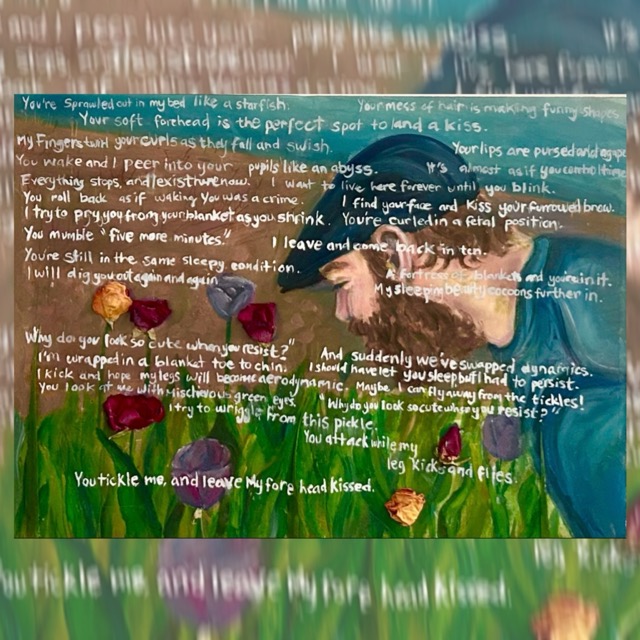 You're sprawled out in my bed like a starfish.
Your mess of hair is making funny shapes
Your soft forehead is the perfect spot to land a kiss.
My fingers twirl your curls as they fall and swish.
Your lips are pursed and agape
You wake and I peer into your pupils like an abyss.
It's almost as if you control time
Everything stops, and I exist here now. I want to live here forever until you blink.
You roll back as if waking you was a crime.
I find your face and kiss your furrowed brow.
I try to pry you from your blanket as you shrink. You're curled in a fetal position.
You mumble "five more minutes."
I leave and come back in ten.
You're still in the same sleepy condition.
A fortress of blankets and you're in it.
I will dig you out again and again
My sleeping beauty cocoons further in.
Why do you look so cute when you resist?"
And suddenly we've swapped dynamics.
I'm wrapped in a blanket toe to chin.
I should have let you sleep but I had to persist.
I kick and hope my legs will become aerodynamic. Maybe I can fly away from the tickles!
You look at me with mischievous green eyes.
"Why do you look so cute when you resist?"
I try to wriggle from this pickle.
You attack while my
leg kicks and flies.
You tickle me, and leave my forehead kissed.